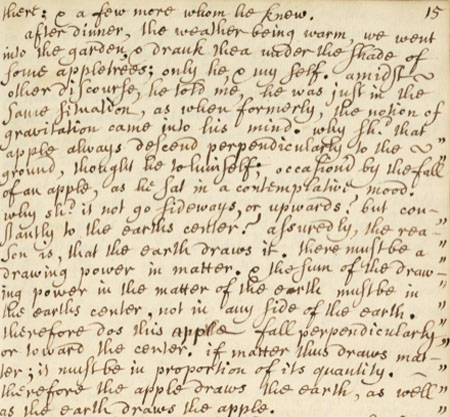 there: & a few more whom he knew. 15
after dinner, the weather being warm, we went
into the garden, & drank thea under the shade of
some appletrees; only he, & my self. amidst ~
other discourse, he told me, he was just in the
same situation, as when formerly, the notion of
gravitation came into his mind. why shd. that
apple always descend perpendicularly to the ~ "
ground, thought he to himself; occasion'd by the fall
of an apple, as he sat in a contemplative mood.
why shd. it not go sideways, or upwards? but con- "
stantly to the earths center? assuredly, the rea- "
son is, that the earth draws it. there must be a "
drawing power in matter. & the sum of the draw- "
ing power in the matter of the earth must be in "
the earths center, not in any side of the earth. "
therefore dos this apple fall perpendicularly "
or toward the center. if matter thus draws mat- "
ter; it must be in proportion of its quantity. ~ "
therefore the apple draws the earth, as well "
as the earth draws the apple.